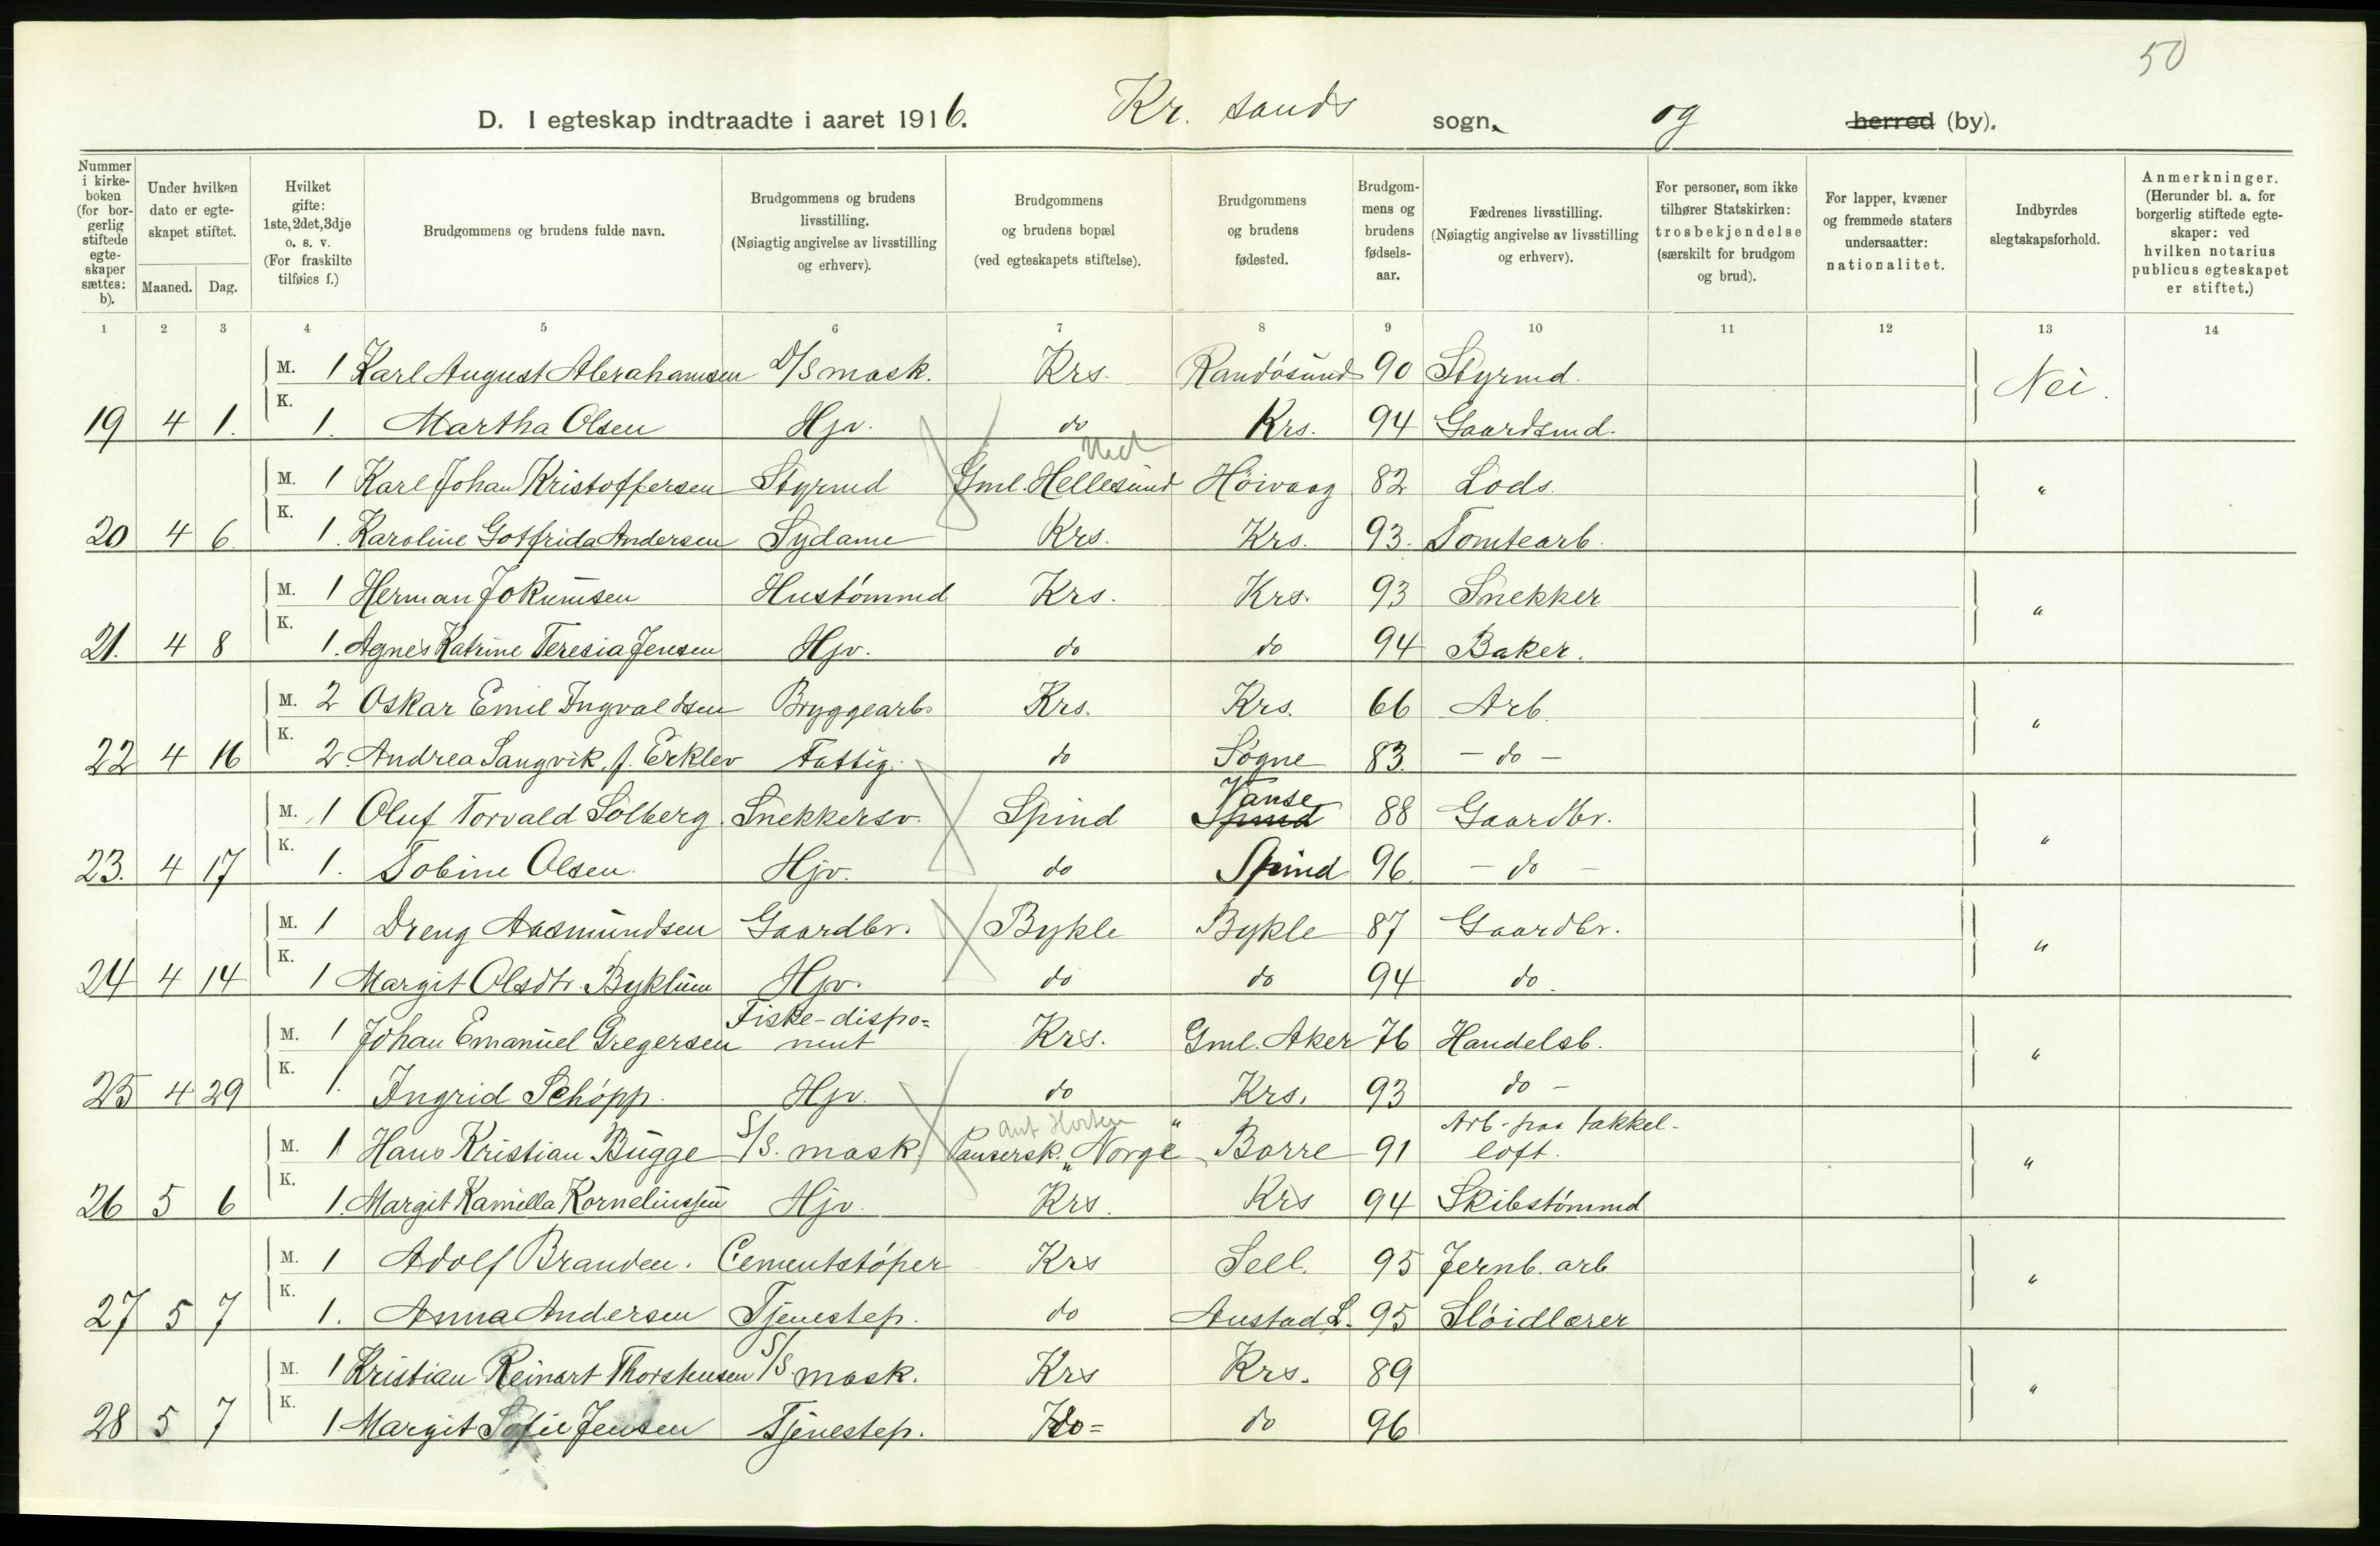 50
D. I egteskap indtraadte i aaret 1916. Kr. sands sogn, og herred (by).
Nummer i kirke- boken (for bor- gerlig stiftede egte- skaper sættes: b).
Under hvilken dato er egte- skapet stiftet.
Maaned. Dag.
Hvilket gifte: 1ste, 2det, 3dje o. s. v. (For fraskilte tilføies f.)
Brudgommens og brudens fulde navn.
Brudgommens og brudens livsstilling. (Nøiagtig angivelse av livsstilling og erhverv).
Brudgommens og brudens bopæl (ved egteskapets stiftelse).
Brudgommens og brudens fødested.
Brudgom- mens og brudens fødsels- aar.
Fædrenes livsstilling. (Nøiagtig angivelse av livsstilling og erhverv).
For personer, som ikke tilhører Statskirken: trosbekjendelse (særskilt for brudgom og brud).
For lapper, kvæner og fremmede staters undersaatter: nationalitet.
Indbyrdes slegtskapsforhold.
Anmerkninger. (Herunder bl. a. for borgerlig stiftede egte- skaper: ved hvilken notarius publicus egteskapet er stiftet.)
1 2 3 4 5 6 7 8 9 10 11 12 13 14
M. 1 Karl August Abrahamsen D/S mask. Krs. Randøsund 90 Styrmd. Nei.
19 4 1. K. 1. Martha Olsen Hjv. do Krs. 94 Gaardsmd.
M. 1 Karl Johan Kristoffersen Styrmd Gml. Hellesund Høivaag 82 Lods. "
20 4 6. K. 1. Karoline Gotfrida Andersen Sydame Krs. Krs. 93. Tomtearb.
M. 1 Herman Jokumsen Hustømmd Krs. Krs. 93 Snekker "
21. 4 8 K. 1. Agnes Katrine Teresia Jensen Hjv. do do 94 Baker.
M. 2 Oskar Emil Ingvaldsen Bryggearb. Krs. Krs. 66 Arb. "
22 4 16 K. 2. Andrea Sangvik, f. Erklev Fattig. do Søgne 83. - do -
M. 1 Oluf Torvald Solberg. Snekkersv. Spind Spind Vanse 88 Gaardbr. "
23. 4 17 K. 1. Tobine Olsen Hjv. do Spind 96. - do -
M. 1 Dreng Aasmundsen Gaardbr. Bykle Bykle 87 Gaardbr. "
24 4 14 K. 1 Margit Olsdtr. Byklum Hjv. do do 94 do.
M. 1 Johan Emanuel Gregersen Fiske-dispo= nent Krs. Gml. Aker 76 Handelsb. "
25 4 29 K. 1. Ingrid Schøpp. Hjv. do Krs. 93 do -
M. 1 Hans Kristian Bugge S/S. mask. ant Horten Pansersk. „Norge" Borre 91 Arb. paa takkel- loft. "
26 5 6 K. 1. Margit Kamilla Korneliussen Hjv. Krs. Krs 94 Skibstømmd
M. 1 Adolf Branden. Cementstøper Krs Sell. 95 Jernb. arb "
27 5 7 K. 1. Anna Andersen Tjenestep. do Austad L. 95 Sløidlærer
M. 1 Kristian Reinart Thorstensen S/S mask. Krs Krs. 89 "
28 5 7 K. 1 Margit Sofie Jensen Tjenestep. do= do 96